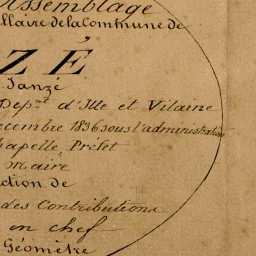 Assemblage
llaire de la Commune de
ZÉ
Janzé
Dep.t d'Ille et Vilaine
ecembre 1836 sous l'administration
hapelle, Préfet
maire
ction de
des Contributions
en chef
Géomètre